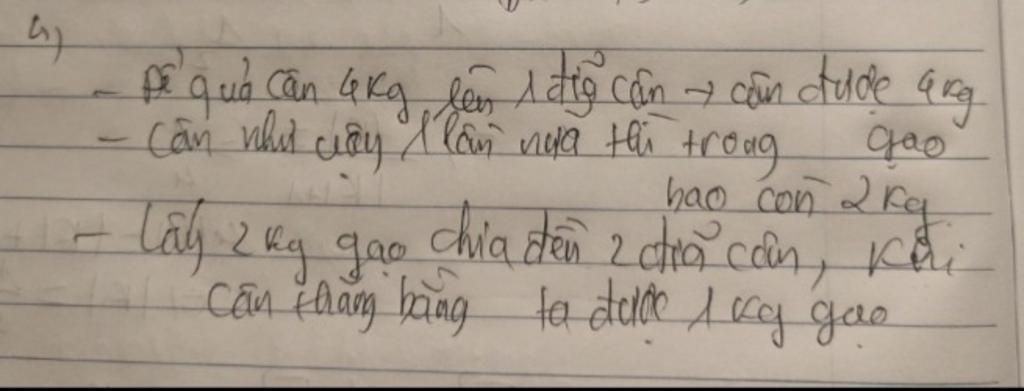 4)
- Để quả cân 4Kg lên 1 đĩa cân → cân được 4Kg
- Cân như vậy 1 lần nữa thì trong gạo
bao còn 2 Kg
- Lấy 2 kg gạo chia đều 2 đĩa cân, Khi
cân thăng bằng ta được 1 kg gạo